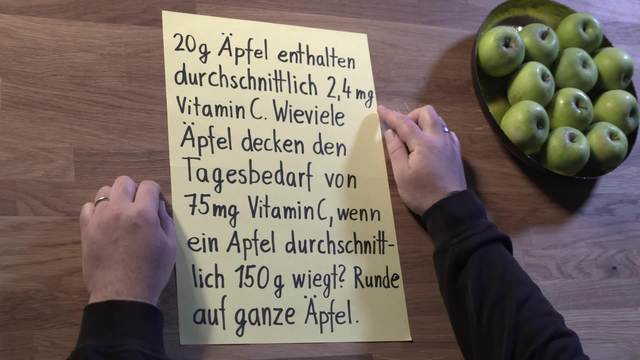 20g Äpfel enthalten
durchschnittlich 2,4mg
Vitamin C. Wieviele
Äpfel decken den
Tagesbedarf von
75mg Vitamin C, wenn
ein Apfel durchschnitt-
lich 150g wiegt? Runde
auf ganze Äpfel.